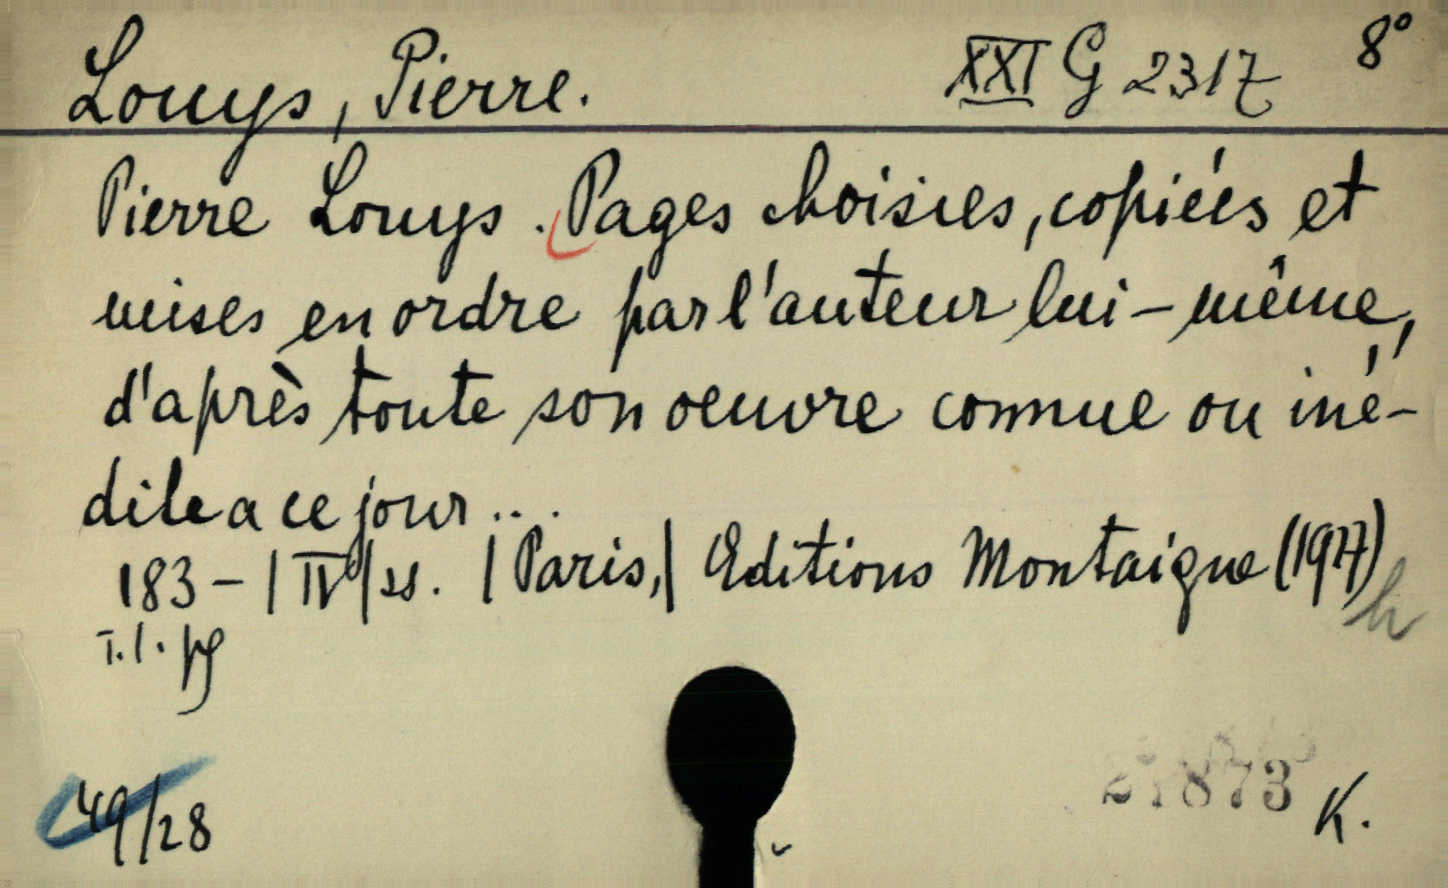 Louys, Pierre. XXI G 2317 8°
Pierre Louys. Pages choisies, copiées et
mises en ordre par l'auteur lui-même,
d'après toute son oeuvre connue ou iné-
dite a ce jour...
183-|IV|ss. |Paris,| Editions Montaigne (1927)
49/28
27873 K.